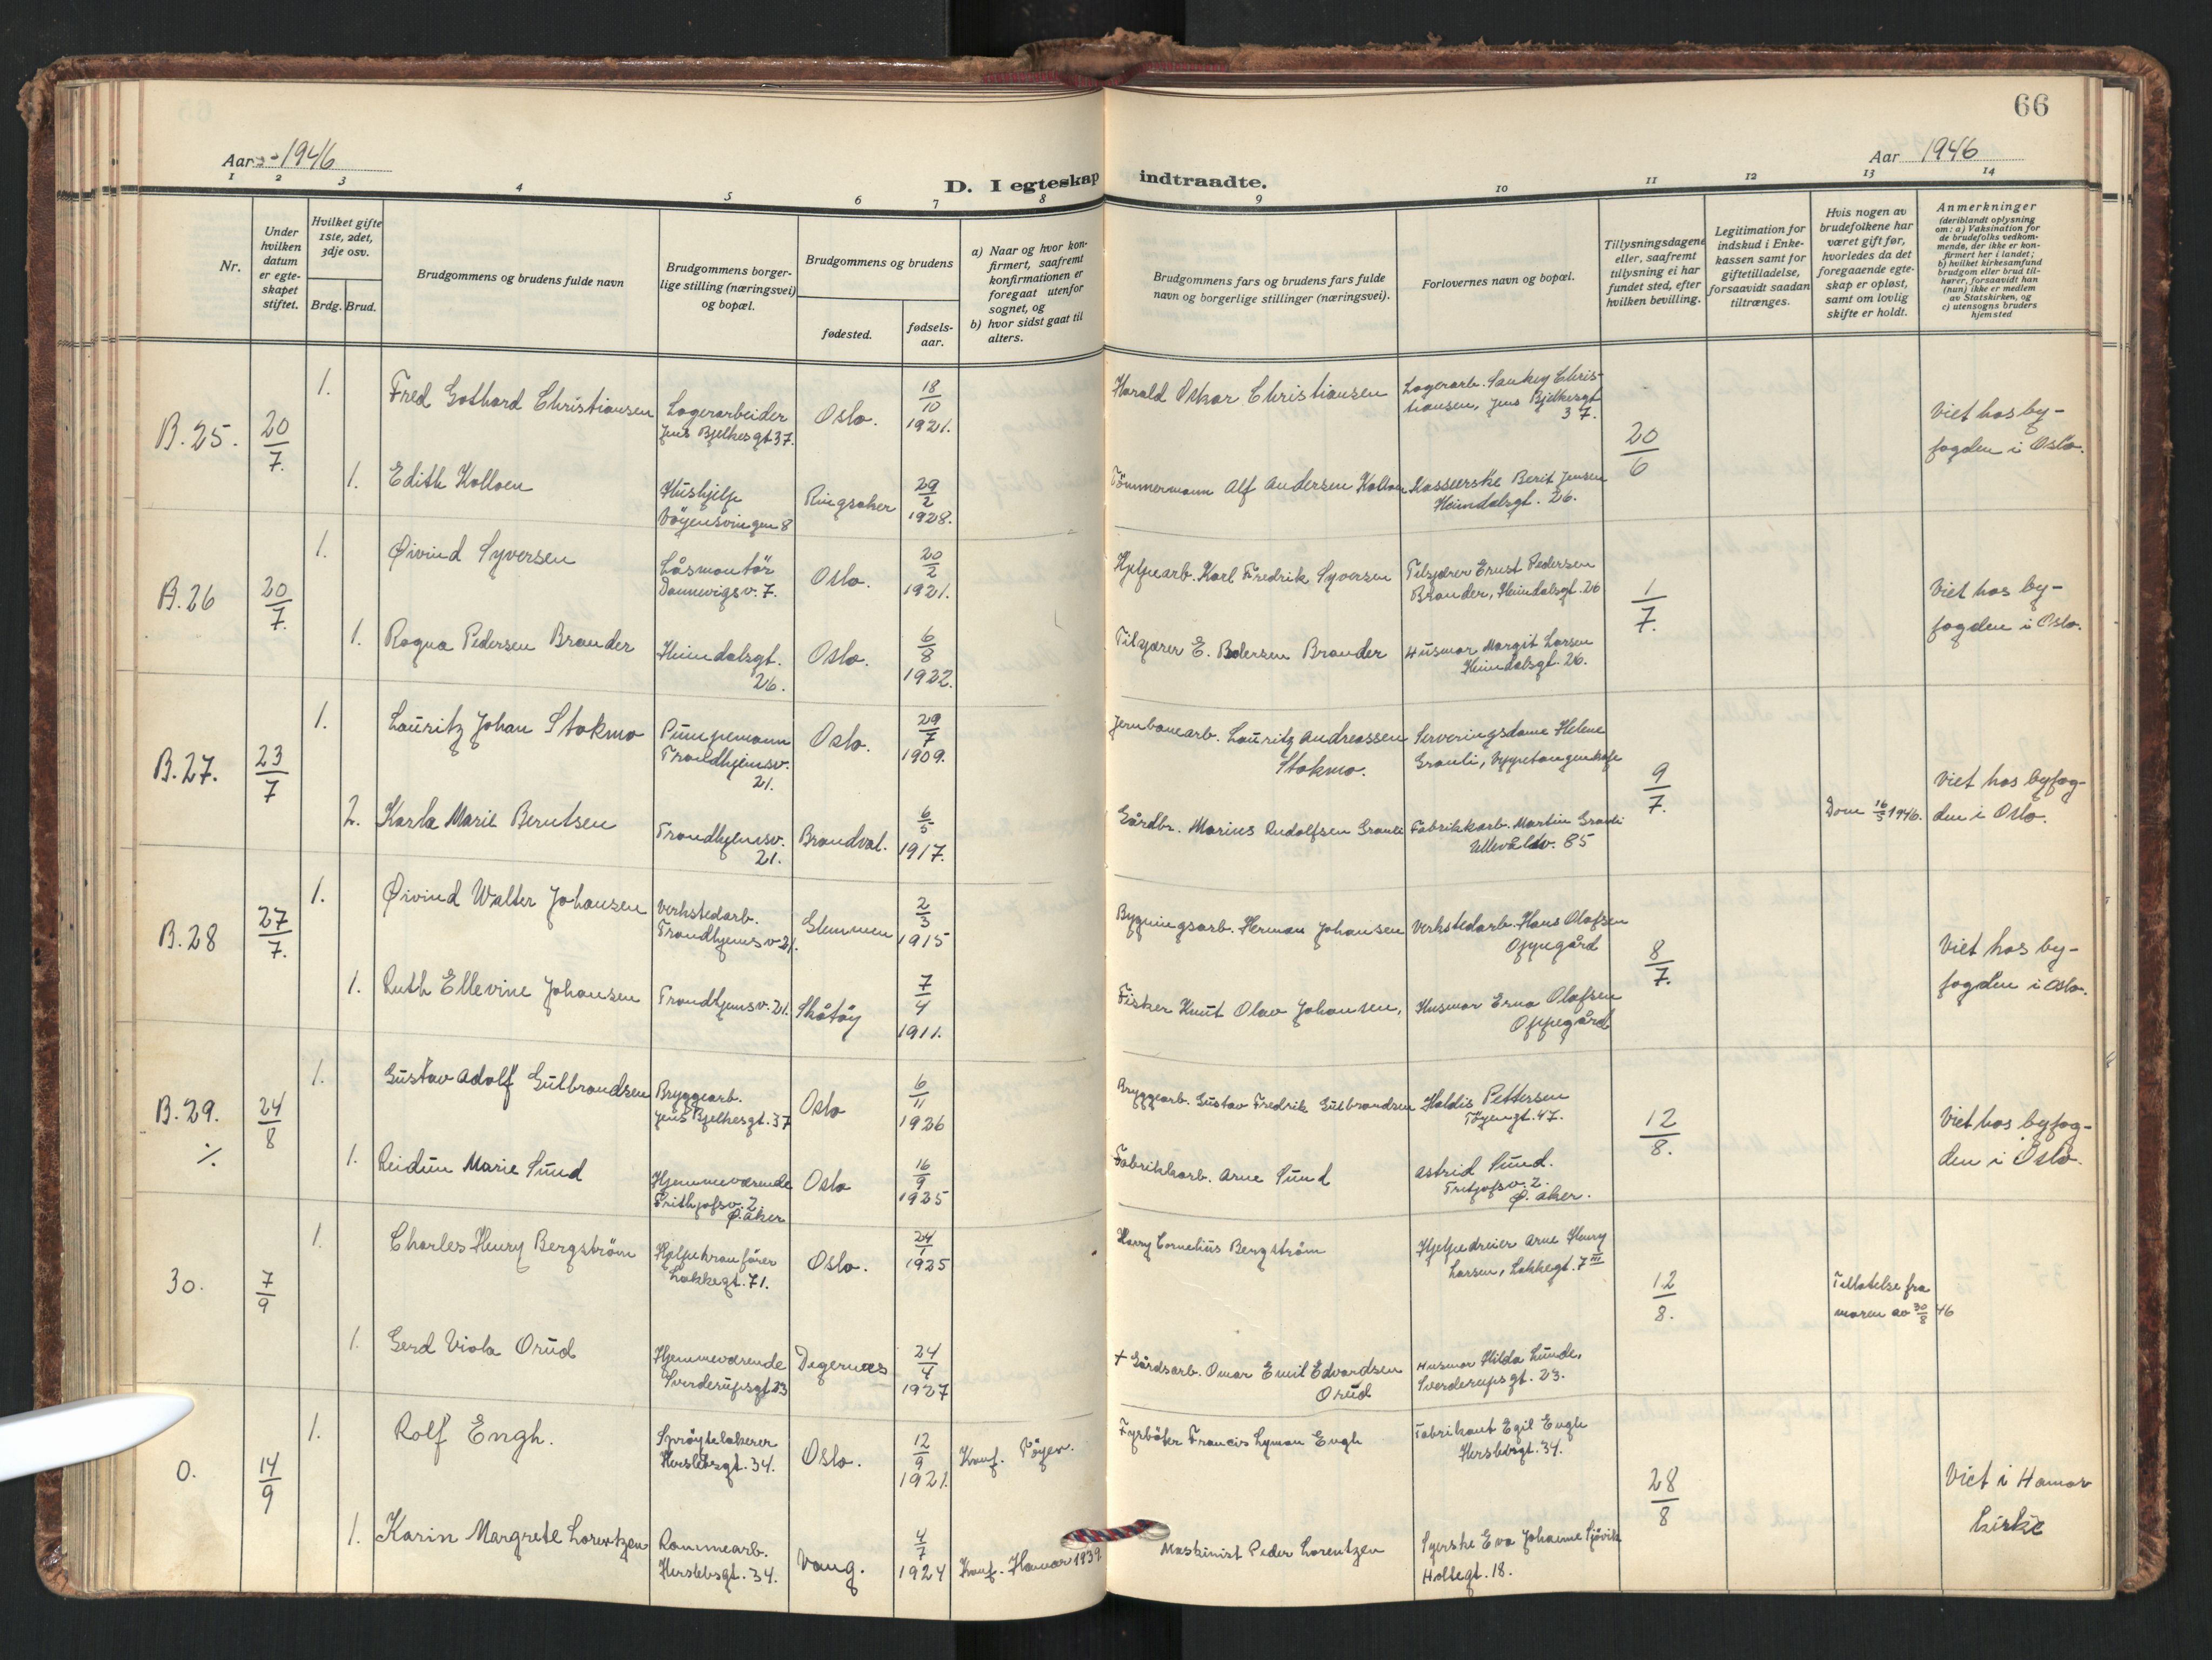 66
Aar 1946
Aar 1946
D. I egteskap indtraadte.
1 2 3 4 5 6 7 8 9 10 11 12 13 14
Nr.
Under hvilken datum er egteskapet stiftet.
Hvilket gifte 1ste, 2det, 3dje osv.
Brdg. Brud.
Brudgommens og brudens fulde navn
Brudgommens borgerlige stilling (næringsvei) og bopæl.
Brudgommens og brudens
fødested.
fødselsaar.
a) Naar og hvor konfirmert, saafremt konfirmationen er foregaat utenfor sognet, og
b) hvor sidst gaat til alters.
Brudgommens fars og brudens fars fulde navn og borgerlige stillinger (næringsvei).
Forlovernes navn og bopæl.
Tillysningsdagene eller, saafremt tillysning ei har fundet sted, efter hvilken bevilling.
Legitimation for indskud i Enkekassen samt for giftetilladelse, forsaavidt saadan tiltrænges.
Hvis nogen av brudefolkene har været gift før, hvorledes da det foregaaende egteskap er opløst, samt om lovlig skifte er holdt.
Anmerkninger (deriblandt oplysning om: a) Vaksination for de brudefolks vedkommende, der ikke er konfirmert her i landet; b) hvilket kirkesamfund brudgom eller brud tilhører, forsaavidt han (hun) ikke er medlem av Statskirken, og c) utensogns bruders hjemsted
B.25. 20/7.
1. Fred Gothard Christiansen Lagerarbeider Jens Bjelkesgt 37. Oslo. 18/10 1921. Harald Oskar Christiansen Lagerarb. Sankey Christiansen, Jens Bjelkesgt 37.
20/6 Viet hos byfogden i Oslo.
1. Edith Kolloen Hushjelp Vøyensvingen 8 Ringsaker 29/2 1928. Tömmermann Alf Andersen Kolloen Kasserske Berit Jensen Heimdalsgt. 26.
B.26 20/7.
1. Øivind Syversen Låsmontör Dannevigsv. 7. Oslo. 20/2 1921. Hjelpearb. Karl Fredrik Syversen Tilsjører Ernst Pedersen Brander, Heimdalsgt. 26
1/7. Viet hos byfogden i Oslo.
1. Ragna Pedersen Brander Heimdalsgt. 26. Oslo. 6/8 1922. Tilsjører E. Pedersen Brander Husmor Margit Larsen Heimdalsgt. 26.
B.27. 23/7
1. Lauritz Johan Stokmo Pumpemann Trondhjemsv. 21. Oslo. 29/7 1909. Jernbanearb. Lauritz Andreassen Stokmo. Serveringsdame Helene Granli, Vippetangenkafe
9/7. Dom 16/5 1946. Viet hos byfogden i Oslo.
2. Karla Marie Berntsen Trondhjemsv. 21. Brandval. 6/5 1917. Gårdbr. Marius Rudolfsen Granli Fabrikkarb. Martin Granli Ullevålsv. 85
B.28 27/7.
1. Øivind Walter Johansen Verkstedarb. Trondhjemsv 21. Glemmen 2/3 1915 Bygningsarb. Herman Johansen Verkstedarb. Hans Olafsen Oppegård
8/7. Viet hos byfogden i Oslo.
1. Ruth Ellevine Johansen Trondhjemsv. 21. Skåtøy 7/4 1911. Fisker Knut Olav Johansen, Husmor Erna Olafsen Oppegård
B.29. 24/8
1. Gustav Adolf Gulbrandsen Bryggearb. Jens Bjelkesgt. 37 Oslo 6/11 1926 Bryggearb. Gustav Fredrik Gulbrandsen Haldis Pettersen Tøyengt. 47.
12/8. Viet hos byfogden i Oslo.
%
1. Reidun Marie Sund Hjemmeværende Frithjofsv. 2. Ø. Aker Oslo 16/9 1925 Fabrikkarb. Arne Sund Astrid Sund. Fritjofsv. 2. Ø. Aker.
30. 7/9
1. Charles Henry Bergström Hjelpekranförer Lakkegt. 71. Oslo. 24/1 1925 Harry Cornelius Bergström Hjelpedreier Arne Henry Larsen, Lakkegt. 7 III
12/8. Tillatelse fra moren av 30/8 46
1. Gerd Viola Orud Hjemmeværende Sverdrupsgt. 23 Degernes 24/4 1927 + Gårdsarb. Omar Emil Edvardsen Orud Husmor Hilda Lunde, Sverderupsgt. 23.
0. 14/9
1. Rolf Engh. Sprøytelakerer Herslebsgt. 34. Oslo. 12/9 1921. Konf. Tøyen. Fyrböter Francis Lyman Engh Fabrikant Egil Engh Herslebsgt. 34.
28/8 Viet i Hamar kirke
1. Karin Margrete Lorentzen Rammearb. Herslebsgt. 34. Vang. 4/7 1924 Konf. Hamar 1939. Maskinist Peder Lorentzen Syerske Eva Johanne Sjövik Holtegt. 18.